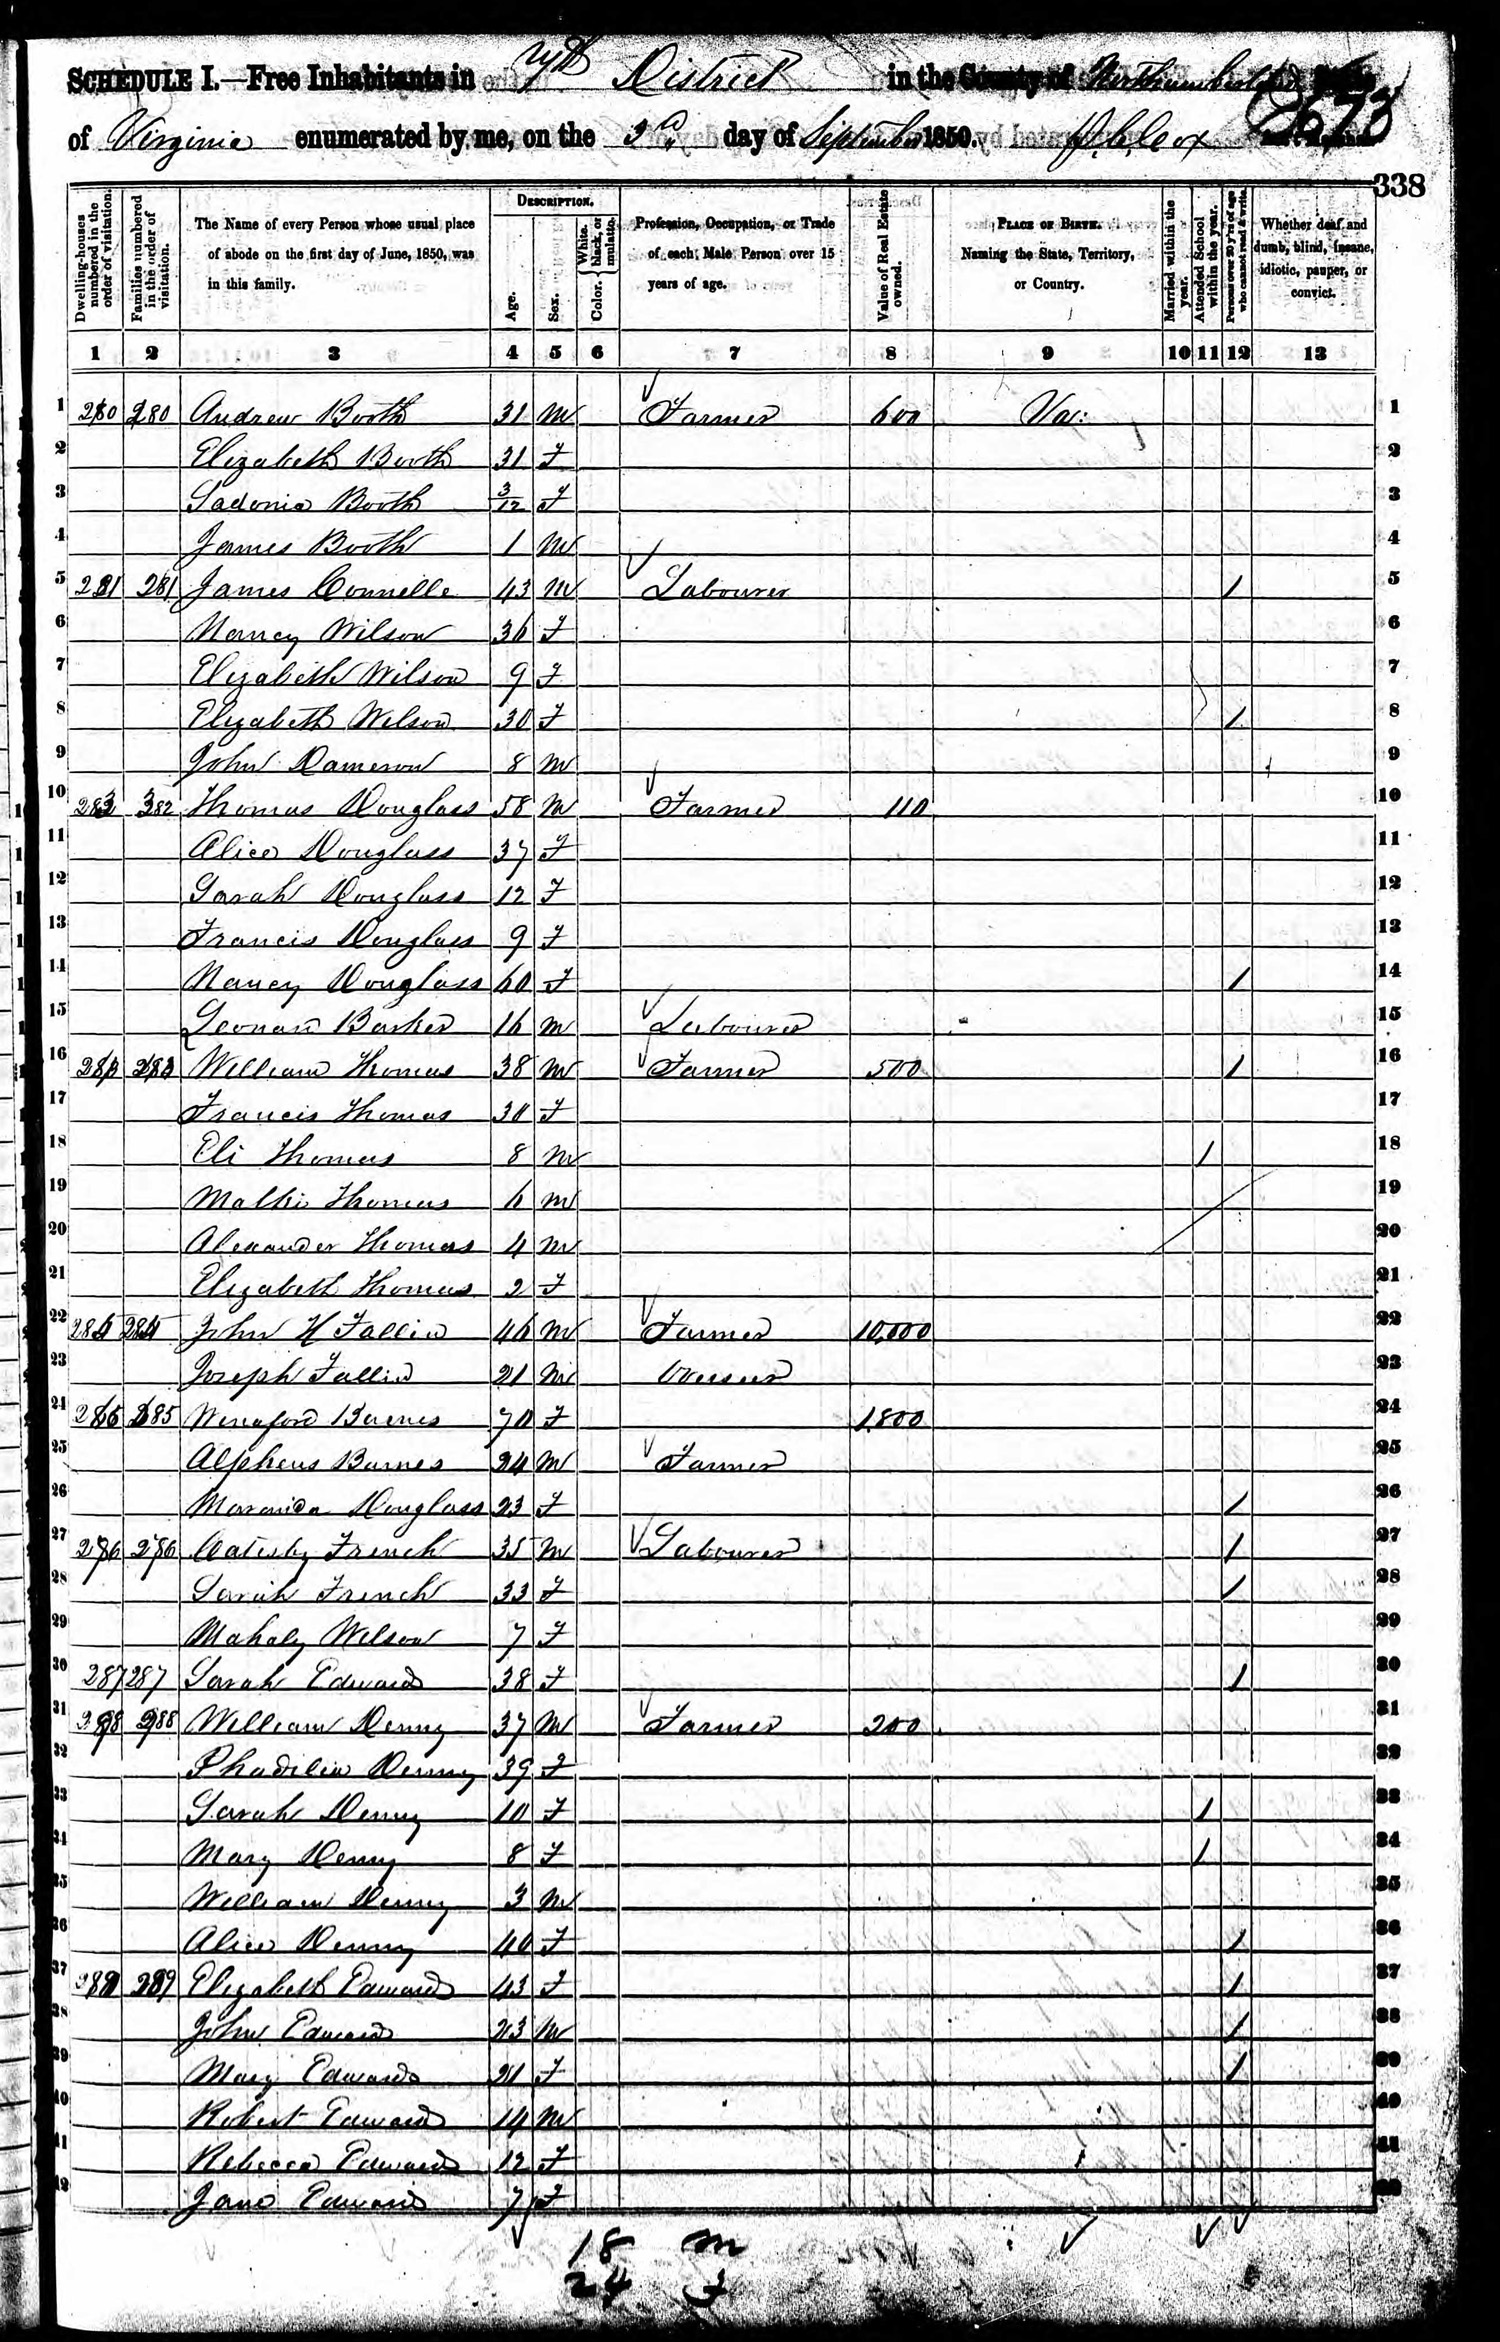 SCHEDULE I.—Free Inhabitants in District in the County of Northumberland
of Virginia enumerated by me, on the 3d day of September 1850.
2673
338
Dwelling-houses numbered in the order of visitation.
Families numbered in the order of visitation.
The Name of every Person whose usual place of abode on the first day of June, 1850, was in this family.
DESCRIPTION.
Age.
Sex.
Color. White, black, or mulatto.
Profession, Occupation, or Trade of each Male Person over 15 years of age.
Value of Real Estate owned.
PLACE OF BIRTH. Naming the State, Territory, or Country.
Married within the year.
Attended School within the year.
Persons over 20 y'rs of age who cannot read & write.
Whether deaf and dumb, blind, insane, idiotic, pauper, or convict.
1 2 3 4 5 6 7 8 9 10 11 12 13
1 280 280 Andrew Booth 31 M Farmer 600 Va: 1
2 Elizabeth Booth 31 F 2
3 Sadonia Booth 3/12 F 3
4 James Booth 1 M 4
5 281 281 James Connelle 43 M Labourer / 5
6 Nancy Wilson 36 F 6
7 Elizabeth Wilson 9 F 7
8 Elizabeth Wilson 30 F / 8
9 John Dameron 8 M 9
10 Thomas Douglass 58 M Farmer 110 10
11 Alice Douglass 37 F 11
12 Sarah Douglass 12 F 12
13 Francis Douglass 9 F 13
14 Nancy Douglass 60 F / 14
15 Leonard Barker 16 M Labourer 15
16 283 283 William Thomas 38 M Farmer 500 / 16
17 Francis Thomas 30 F 17
18 Eli Thomas 8 M / 18
19 Thomas 6 M 19
20 Alexander Thomas 4 M 20
21 Elizabeth Thomas 2 F 21
22 284 284 John H Fallin 46 M Farmer 10,000 22
23 Joseph Fallin 21 M Overseer 23
24 285 285 Barnes 70 F 1,800 24
25 Alpheus Barnes 24 M Farmer 25
26 Douglass 23 F / 26
27 286 286 Catesby French 35 M Labourer / 27
28 Sarah French 33 F / 28
29 Mahaly Wilson 7 F 29
30 287 287 Sarah Edwards 38 F / 30
31 288 288 William Denny 37 M Farmer 200 31
32 Denny 39 F 32
33 Sarah Denny 10 F / 33
34 Mary Denny 8 F / 34
35 William Denny 3 M 35
36 Alice Denny 40 F / 36
37 289 289 Elizabeth Edwards 43 F / 37
38 John Edwards 23 M / 38
39 Mary Edwards 21 F / 39
40 Robert Edwards 14 M 40
41 Rebecca Edwards 12 F 41
42 Jane Edwards 7 F
18 M
24 F